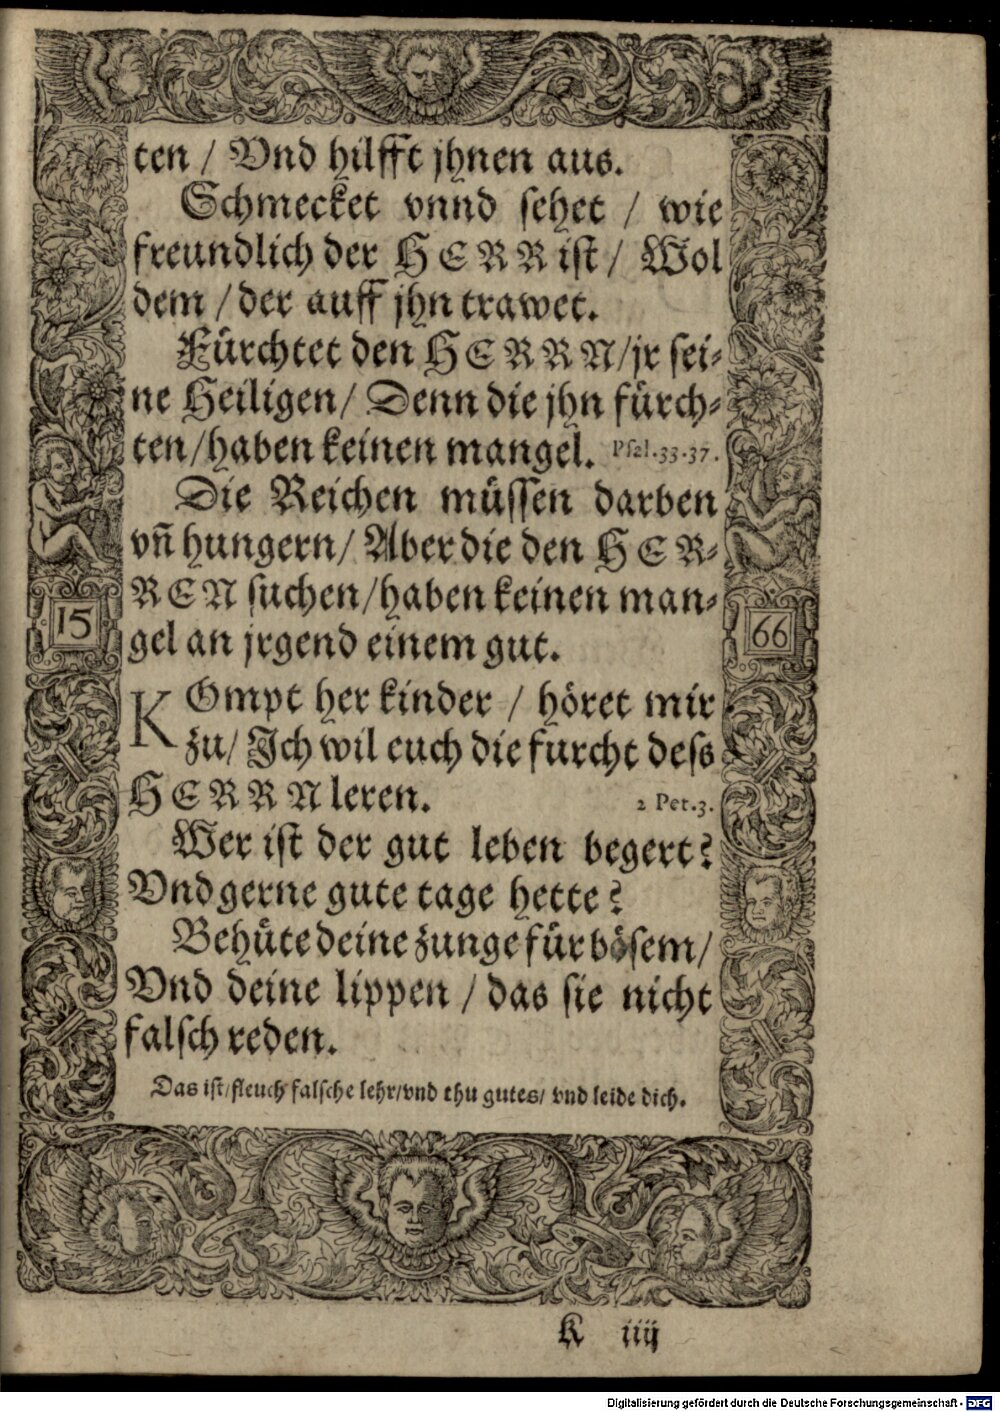 ten / Vnd hilfft jhnen aus.
Schmecket vnnd sehet / wie
freundlich der HERR ist / Wol
dem / der auff jhn trawet.
Fürchtet den HERRN/jr sei⸗
ne Heiligen/ Denn die jhn fürch⸗
ten/haben keinen mangel. Psal.33.37.
Die Reichen müssen darben
vñ hungern/ Aber die den HER⸗
REN suchen/haben keinen man⸗
gel an jrgend einem gut.
15
66
KOmpt her kinder / höret mir
zu/ Ich wil euch die furcht dess
HERRN leren. 2 Pet.3.
Wer ist der gut leben begert?
Vnd gerne gute tage hette?
Behüte deine zunge für bösem/
Vnd deine lippen / das sie nicht
falsch reden.
Das ist/fleuch falsche lehr/vnd thu gutes/ vnd leide dich.
K iiij
Digitalisierung gefördert durch die Deutsche Forschungsgemeinschaft - DFG